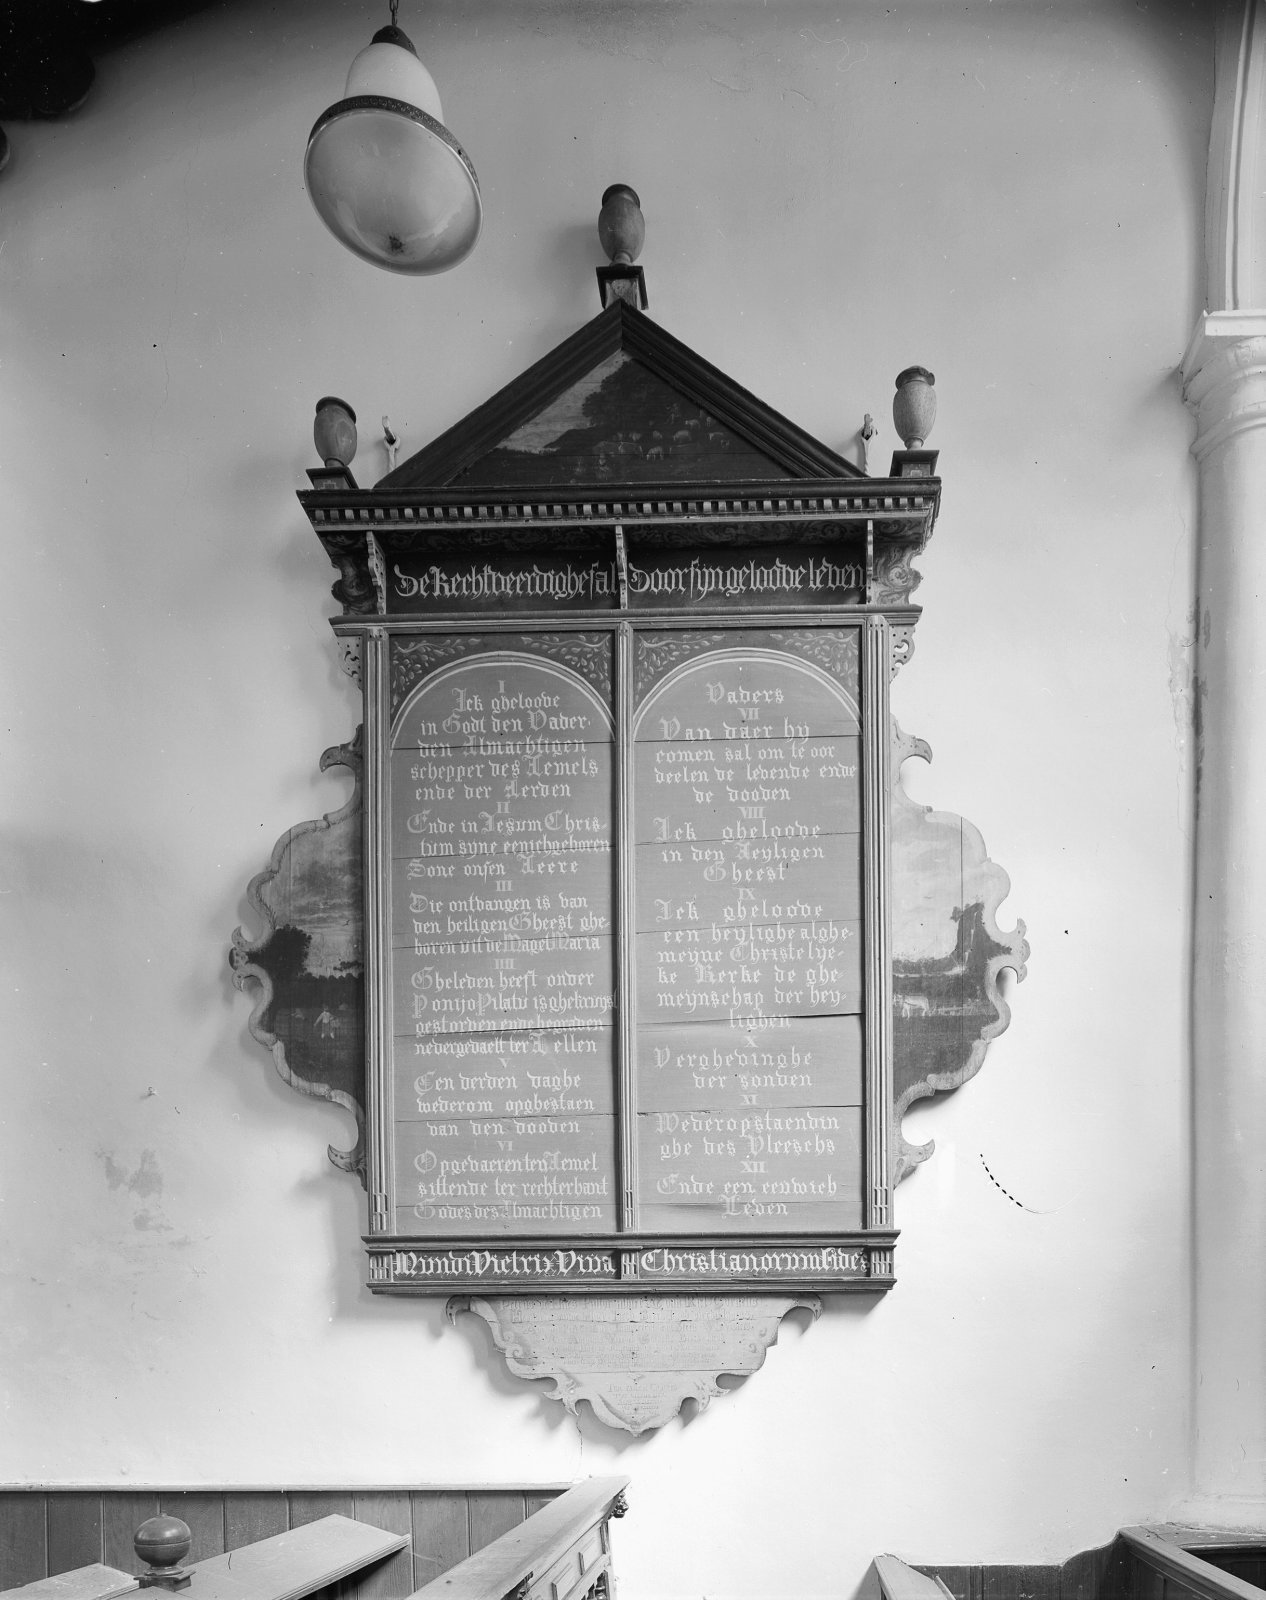 De Rechtveerdighe sal Door syn geloove leven
I
Ick gheloove
in Godt den Vader
den Almachtigen
schepper des Hemels
ende der Aerden
II
Ende in Jesum Chris-
tum syne eenichgeboren
Sone onsen Heere
III
Die ontvangen is van
den heiligen Gheest ghe-
boren uit de Maget Maria
IIII
Gheleden heeft onder
Ponijo Pilatu is ghekruijst
gestorven ende begraven
nedergedaelt ter Hellen
V
Een derden daghe
wederom opghestaen
van den dooden
VI
Opgevaren ten Hemel
sittende ter rechterhant
Godes des Almachtigen
Vaders
VII
Van daer hy
comen sal om te oor
deelen de levende ende
de dooden
VIII
Ick gheloove
in den Heyligen
Gheest
IX
Ick gheloove
een heylighe alghe-
meijne Christelye-
ke Kerke de ghe
meijnschap der hey
lighen
X
Vergheving ghe
der sonden
XI
Wederopstaendin
ghe des Vleeschs
XII
Ende een eeuwich
Leven
Mundi Victrix Viva Christianorum fides